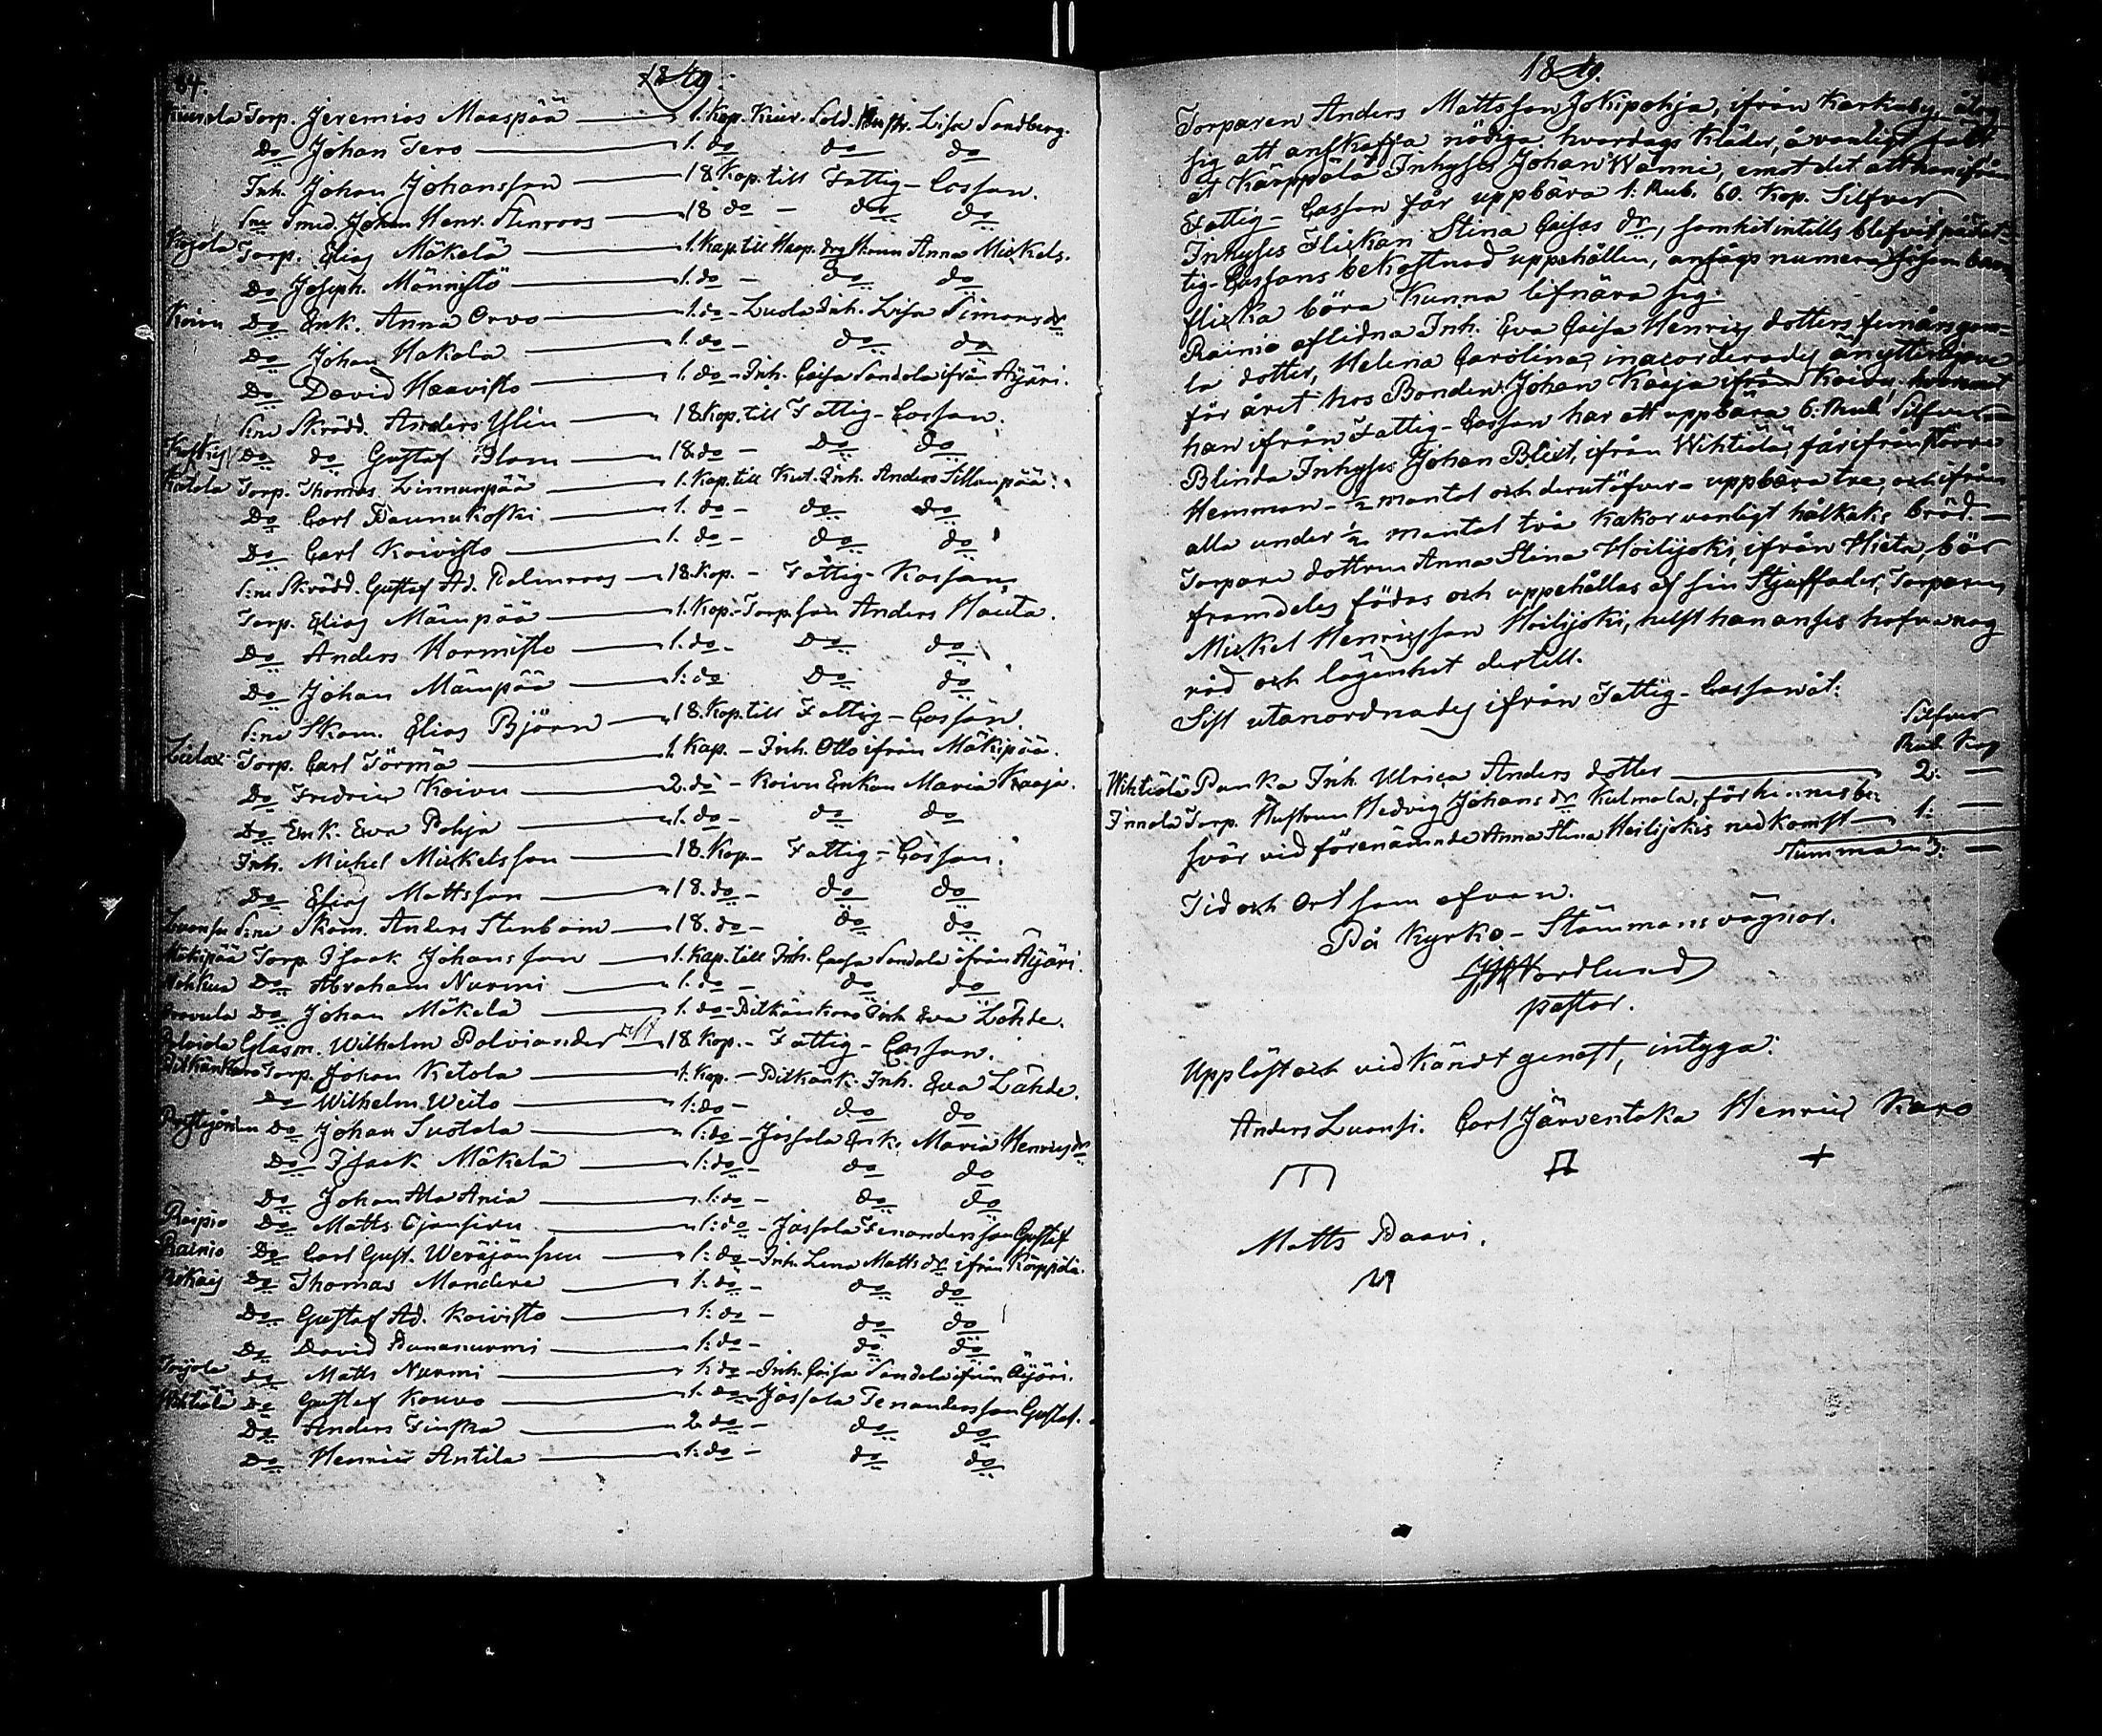 64. 1849.
Kiurala Torp. Jeremias Maaspää — 1. Kap. Kiur. Sold. Hustr. Lisa Sandberg.
Do Johan Tero — 1. do do do
Inh. Johan Johansson — 18 Kop. till Fattig-Cassan.
Sne Smed. Johan Henr. Stenroos — 18 do - do do
Kojola Torp. Elias Mäkelä — 1. Kap. till Haap. Anna Mickels.
Do Joseph. Männistö — 1. do - do do
Koivu Do Enk. Anna Orvo — 1. do - Luola Inh. Lisa Simons dr
Do Johan Hakala — 1. do - do do
Do David Haavisto — 1. do - Inh. Caisa Sandola ifrån Äyäri.
Sne Skrädd. Anders Ylin — 18 Kop. till Fattig-Cassan.
Do do Gustaf Blom — 18 do - do do
Katola Torp. Thomas Linnunpää — 1. Kap. till Kut. Inh. Anders Sillanpää.
Do Carl Paunukoski — 1. do - do do
Do Carl Koivisto — 1. do - do do
Sne Skrädd. Gustaf Ad. Palmroos — 18 Kop. - Fattig-Kassan
Torp. Elias Mämpää — 1. Kap. - Torp. son Anders Hauta.
Do Anders Harmisto — 1. do - do do
Do Johan Mämpää — 1: do do do
Sne Skom. Elias Björn — 18. Kop. till Fattig-Cassan.
Torp. Carl Törmä — 1. Kap. - Inh. Otto ifrån Mäkipää.
Do Fredric Koivu — 2. do - Koivu Enkan Maria Kaaja.
Do Enk. Eva Pohja — 1. do - do do
Inh. Michel Mickelsson — 18. Kop. - Fattig-Cassan.
Do Elias Mattsson — 18. do - do do
Luonsu Sne Skom. Anders Stenbom — 18. do - do do
Mäkipää Torp. Isaak Johansson — 1. Kap. till Inh. Caisa Sandola ifrån Äyäri.
Nohkua Do Abraham Nurmi — 1. do - do do
Do Johan Mäkelä — 1. do - Pitkänkaro Inh. Eva Lähde.
Polviola Glasm. Wilhelm Polviander — 18 Kop. - Fattig-Cassan.
Pitkänkaro Torp. Johan Ketola — 1. Kap. - Pitkänk. Inh. Eva Lähde.
do Wilhelm Weito — 1: do - do do
Prestgården Do Johan Suotala — 1: do - Jassola Enk. Maria Henrics dr
Do Isaak Mäkelä — 1: do - do do
Do Johan Ala Ania — 1: do - do do
Raipio Do Matts Ojansivu — 1: do - Jassola Tenandersson Gustaf
Rainio Do Carl Gust. Weräjänsuu — 1: do - Inh. Lena Matts dr ifrån Karppälä.
Do Thomas Mandere — 1: do - do do
Do Gustaf Ad. Koivisto — 1: do - do do
Do David Punanurmi — 1: do - do do
do Matts Nurmi — 1: do - Inh. Caisa Sandola ifrån Äyäri.
Wihtiälä do Gustaf Kouvo — 1. do - Jassola Tenandersson Gustaf.
Do Anders Finska — 2 do - do do
Do Henric Antila — 1: do - do do
1849.
Torparen Anders Mattsson Jokipohja, ifrån Karkaby, åtog
sig att anskaffa nödiga hvardags kläder, å vanligt sätt
åt Karppälä Inhyses Johan Wanni, emot det att han ifrån
Fattig-Cassan får uppbära 1: Rub. 60. Kop. Silfver
Inhyses Flickan Stina Caisas dr, som hit intills blifvit på Fat-
tig-Cassans bekostnad uppehållen, ansågs numera såsom barn-
flicka böra kunna lifnära sig.
Rainio aflidna Inh. Eva Caisa Henrics dotters fem års gam-
la dotter, Helena Carolina, inaccorderades å nytt
för året hos Bonden Johan Kaaja ifrån Koivu hvaremot
han ifrån Fattig-Cassan har att uppbära 6: Rub. Silfver. —
Blinda Inhyses Johan Blixt, ifrån Wihtiälä, får ifrån större
Hemman - 1/2 mantal och derutöfver - uppbära tre, och ifrån
alla under 1/2 mantal två kakor vanligt hålkaks bröd. —
Torpare dottren Anna Stina Hoilijoki, ifrån Hieta, bör
framdeles födas och uppehållas af sin Stjuffader, Torparen
Mickel Henricsson Hoilijoki, helst han anses hafva nog
råd och lägenhet dertill.
Sist utanordnades ifrån Fattig-Cassan åt:
Silfver
Rub. Kop
Wihtiälä Panka Inh. Ulrica Anders dotter — 2: —
Innola Torp. Hustrun Hedvig Johans dr Kulmala, för hennes be-
svär vid förenämnde Anna Stina Hoilijokis nedkomst — 1: —
Summa 3: —
Tid och Ort som ofvan.
På Kyrko-Stämmans vägnar.
Nordlund
pastor.
Uppläst och vidkändt genast, intyga:
Anders Luonsi. Carl Järventaka Henric Karo
Matts Paavi.